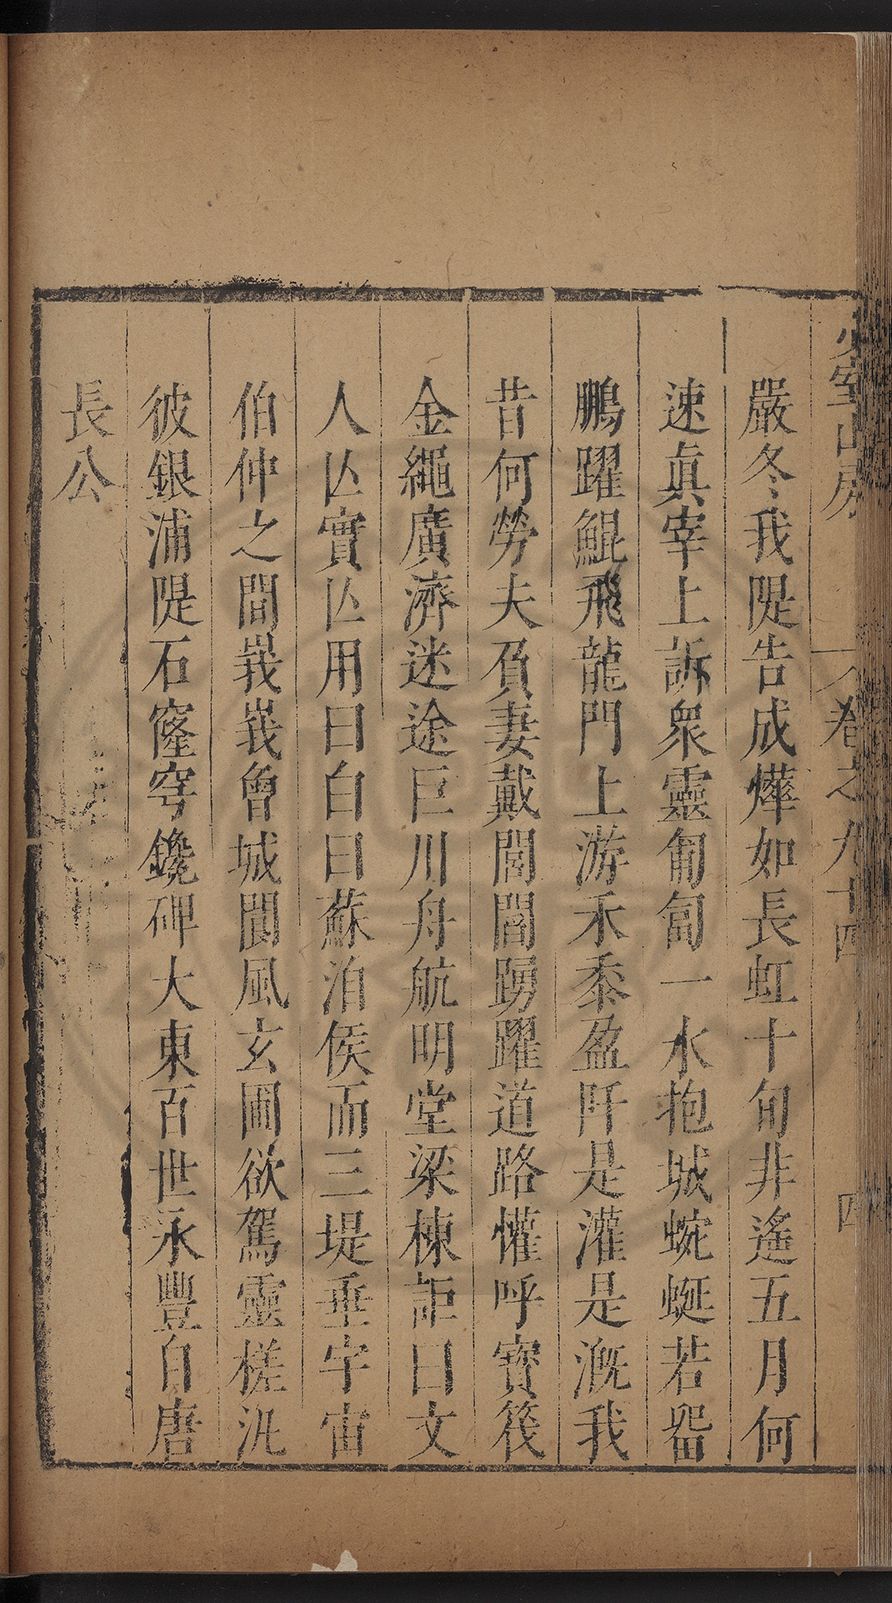 少室山房 卷之九十四 四
嚴冬我隄告成燁如長虹十旬非遙五月何
速眞宰上訴衆靈匍匐一水抱城蜿蜒若留
鵬躍鯤飛龍門上游禾黍盈阡是灌是溉我
昔何勞夫負妻戴閭閻踴躍道路懽呼寶筏
金繩廣濟迷途巨川舟航明堂梁棟詎曰文
人亾實亾用曰白曰蘇泊侯而三堤垂宇宙
伯仲之間峩峩會城閬風玄圃欲駕靈槎汎
彼銀浦隄石窿穹鑱碑大東百世永豐自唐
長公